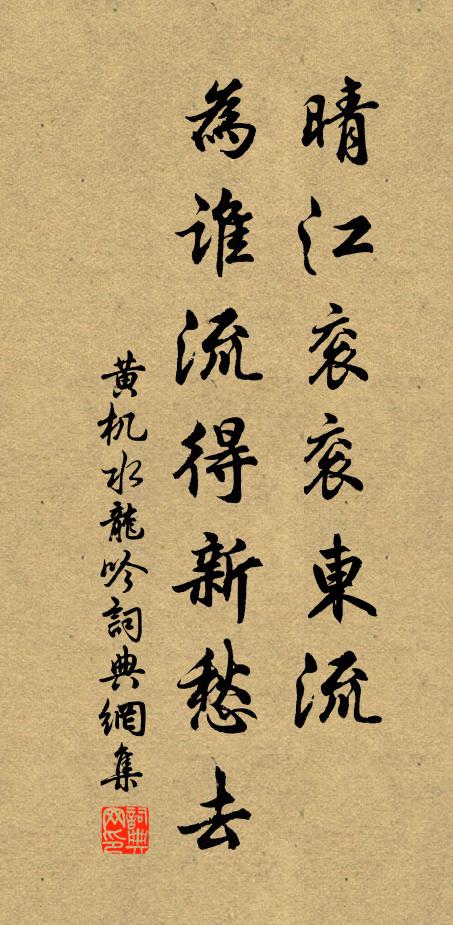 晴江衮衮東流
為誰流得新愁去
黄机水龍吟詞典網集
詞典网印